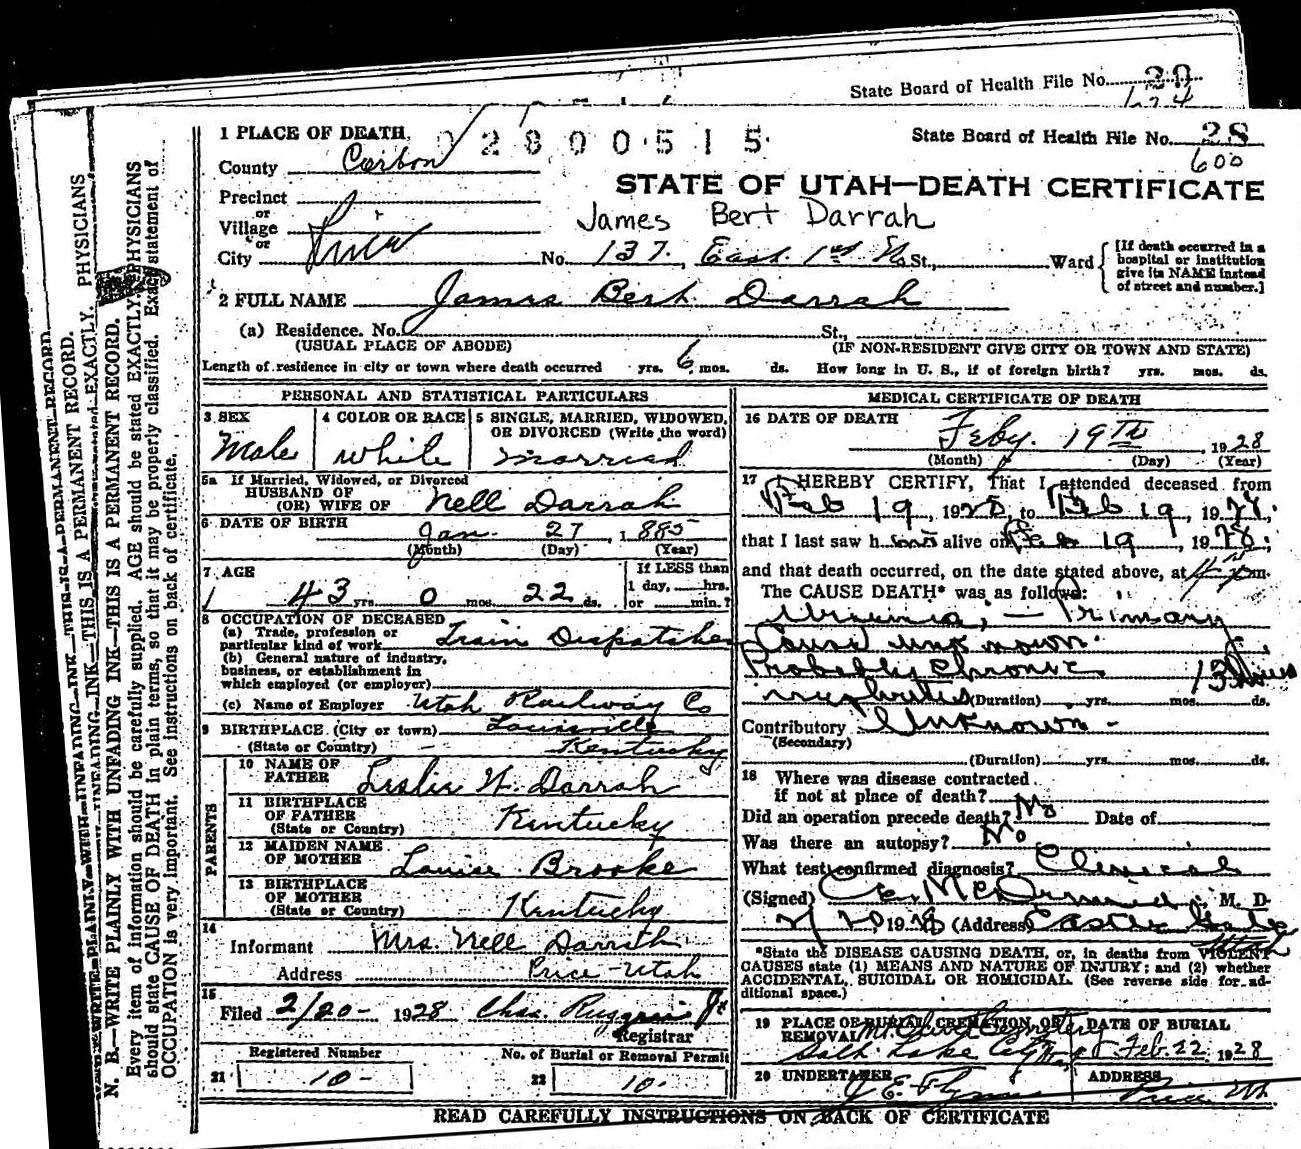 State Board of Health File No. 29
624
1 PLACE OF DEATH
02800515
State Board of Health File No. 28
600
County Carbon
STATE OF UTAH—DEATH CERTIFICATE
Precinct
or
Village
James Bert Darrah
or
City Price No. 137. East 1st So St., Ward
[If death occurred in a
hospital or institution
give its NAME instead
of street and number.]
2 FULL NAME James Bert Darrah
(a) Residence. No. St.,
(USUAL PLACE OF ABODE) (IF NON-RESIDENT GIVE CITY OR TOWN AND STATE)
Length of residence in city or town where death occurred yrs. 6 mos. ds. How long in U. S., if of foreign birth? yrs. mos. ds.
PERSONAL AND STATISTICAL PARTICULARS
3 SEX
Male
4 COLOR OR RACE
White
5 SINGLE, MARRIED, WIDOWED,
OR DIVORCED (Write the word)
Married
5a If Married, Widowed, or Divorced
HUSBAND OF
(OR) WIFE OF Nell Darrah
6 DATE OF BIRTH
Jan. 27, 1885
(Month) (Day) (Year)
7 AGE
43 yrs. 0 mos. 22 ds.
If LESS than
1 day, hrs.
or min.?
8 OCCUPATION OF DECEASED
(a) Trade, profession or
particular kind of work Train Dispatcher
(b) General nature of industry,
business, or establishment in
which employed (or employer)
(c) Name of Employer Utah Railway Co
9 BIRTHPLACE (City or town) Louisville
(State or Country) Kentucky
PARENTS
10 NAME OF
FATHER Leslie W. Darrah
11 BIRTHPLACE
OF FATHER
(State or Country) Kentucky
12 MAIDEN NAME
OF MOTHER Louise Brooke
13 BIRTHPLACE
OF MOTHER
(State or Country) Kentucky
14
Informant Mrs. Nell Darrah
Address Price-Utah
15
Filed 2/20- 1928 Chas. Ruggeri Jr
Registrar
Registered Number
21 10-
No. of Burial or Removal Permit
22 10-
MEDICAL CERTIFICATE OF DEATH
16 DATE OF DEATH
Feby. 19TH, 1928
(Month) (Day) (Year)
17 I HEREBY CERTIFY, That I attended deceased from
Feb 19, 1928, to Feb 19, 1928,
that I last saw him alive on Feb 19, 1928;
and that death occurred, on the date stated above, at 4 m.
The CAUSE DEATH* was as follows:
Uremia, — Primary
Cause unknown.
Probably Chronic 13 hours
nephritis (Duration) yrs. mos. ds.
Contributory Unknown -
(Secondary)
(Duration) yrs. mos. ds.
18 Where was disease contracted
if not at place of death?
Did an operation precede death? No Date of
Was there an autopsy? No
What test confirmed diagnosis? Clinical
(Signed) C.E. McDermid, M. D.
2/20 1928 (Address) Castle Gate
Utah
*State the DISEASE CAUSING DEATH, or, in deaths from VIOLENT
CAUSES state (1) MEANS AND NATURE OF INJURY; and (2) whether
ACCIDENTAL, SUICIDAL OR HOMICIDAL. (See reverse side for ad-
ditional space.)
19 PLACE OF BURIAL, CREMATION, OR
REMOVAL Mt. Olivet Cemetery
Salt Lake City
DATE OF BURIAL
Feb. 22, 1928
20 UNDERTAKER
J. E. Flynn
ADDRESS
Price Ut.
READ CAREFULLY INSTRUCTIONS ON BACK OF CERTIFICATE
N. B.—WRITE PLAINLY WITH UNFADING INK—THIS IS A PERMANENT RECORD.
Every item of information should be carefully supplied. AGE should be stated EXACTLY. PHYSICIANS
should state CAUSE OF DEATH in plain terms, so that it may be properly classified. Exact statement of
OCCUPATION is very important. See instructions on back of certificate.